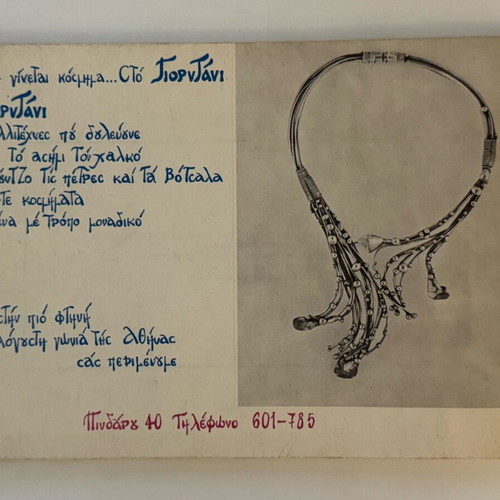 γίνεται κόσμημα... Στό ΓΙΟΡΝΤΑΝΙ
ΟΡΝΤΑΝΙ
λλιτέχνες πού δουλεύουνε
τό ασήμι τόν χαλκό
ούντζο τίς πέτρες καί τά βότσαλα
τε κοσμήματα
ένα μέ τρόπο μοναδικό
στήν πιό φτηνή
λόγυστη γωνιά τής Αθήνας
σάς περιμένουμε
Πινδάρου 40 Τηλέφωνο 601-785